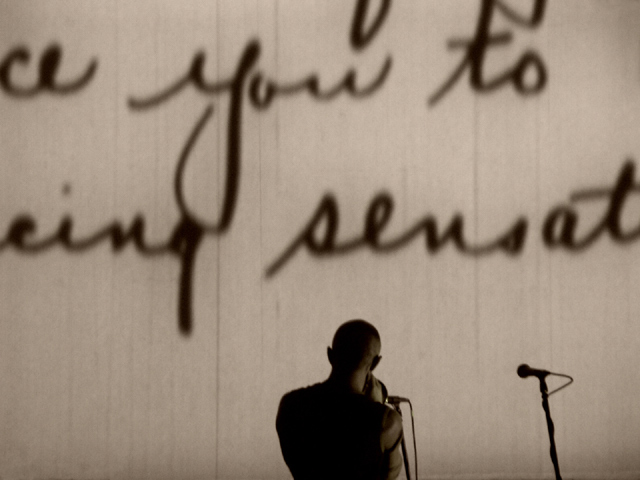 ce you to
cing sensat